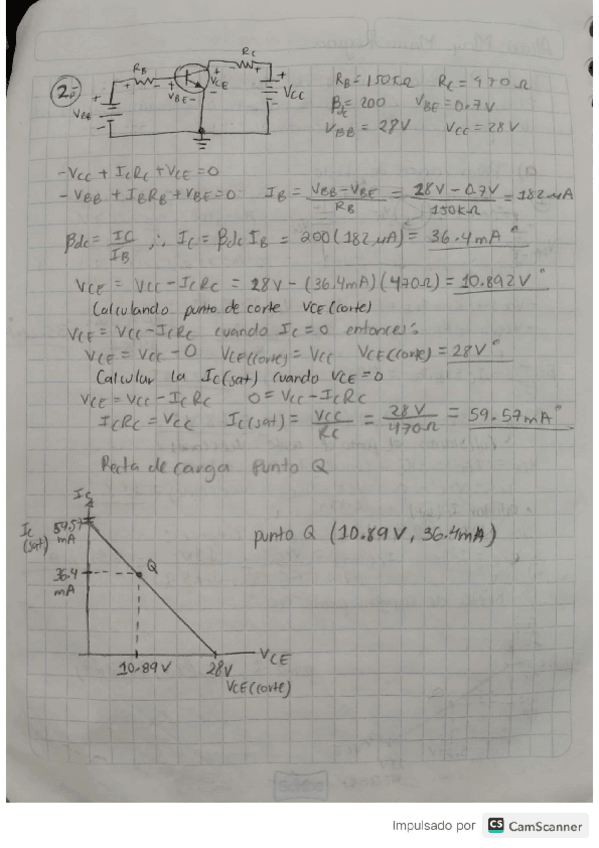 2=
RB
RC
VCE
VBE
VCC
RB = 150KΩ RC = 470Ω
βdc = 200 VBE = 0.7V
VBB = 28V VCC = 28V
-VCC + ICRC + VCE = 0
-VBB + IBRB + VBE = 0 IB = VBB - VBE / RB = 28V - 0.7V / 150KΩ = 182 μA
βdc = IC / IB ∴ IC = βdc IB = 200 (182 μA) = 36.4mA
VCE = VCC - ICRC = 28V - (36.4mA)(470Ω) = 10.892V
Calculando punto de corte VCE(corte)
VCE = VCC - ICRC cuando IC = 0 entonces:
VCE = VCC - 0 VCE(corte) = VCC VCE(corte) = 28V
Calcular la IC(sat) cuando VCE = 0
VCE = VCC - ICRC 0 = VCC - ICRC
ICRC = VCC IC(sat) = VCC / RC = 28V / 470Ω = 59.57mA
Recta de carga punto Q
IC
IC (sat) 59.57 mA
punto Q (10.89V, 36.4mA)
Q
36.4 mA
VCE
10.89V 28V
VCE(corte)
Scribe
Impulsado por CS CamScanner